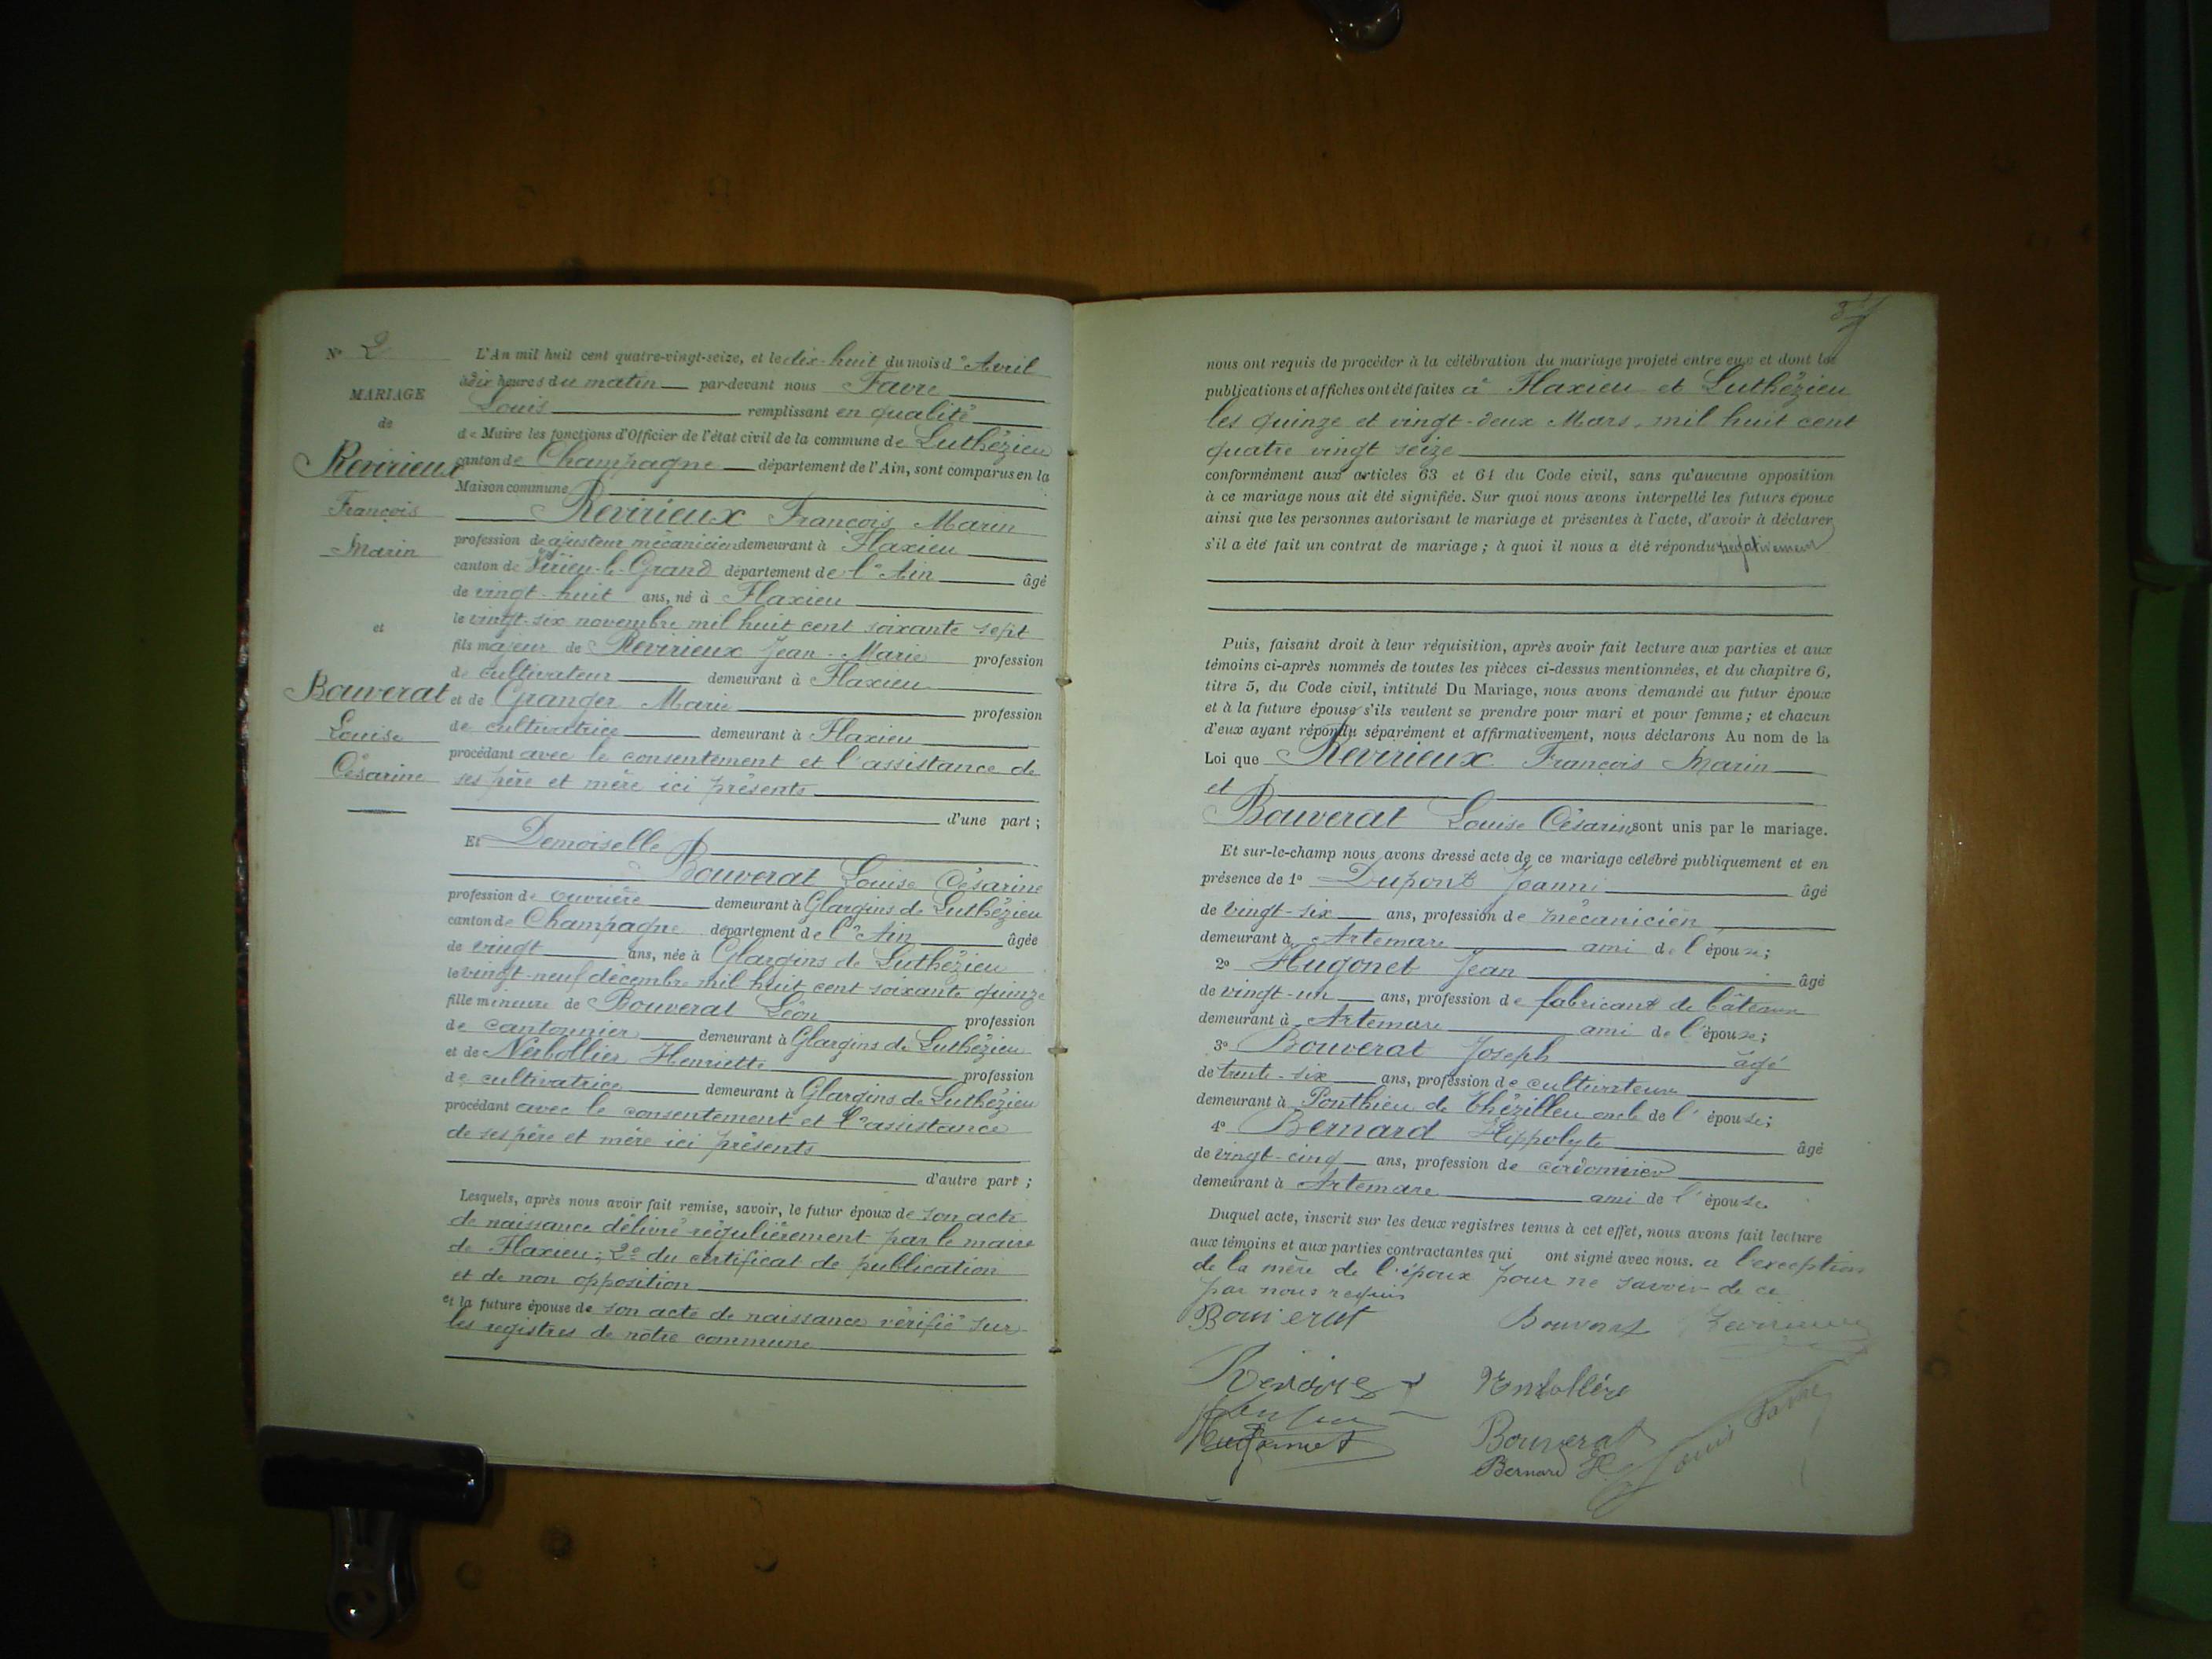 N° 2
MARIAGE
de
Revirieux
François
Marin
et
Bouverat
Louise
Césarine
L'An mil huit cent quatre-vingt-seize, et le dix-huit du mois d'Avril
à dix heures du matin par-devant nous Favre
Louis remplissant en qualité
de Maire les fonctions d'Officier de l'état civil de la commune de Luthézieu
canton de Champagne département de l'Ain, sont comparus en la
Maison commune
Revirieux François Marin
profession de ajusteur mécanicien demeurant à Flaxieu
canton de Virieu-le-Grand département de l'Ain âgé
de vingt-huit ans, né à Flaxieu
le vingt-six novembre mil huit cent soixante sept
fils majeur de Revirieux Jean-Marie profession
de cultivateur demeurant à Flaxieu
et de Granger Marie profession
de cultivatrice demeurant à Flaxieu
procédant avec le consentement et l'assistance de
ses père et mère ici présents
d'une part ;
Et Demoiselle
Bouverat Louise Césarine
profession de ouvrière demeurant à Glargins de Luthézieu
canton de Champagne département de l'Ain âgée
de vingt ans, née à Glargins de Luthézieu
le vingt-neuf décembre mil huit cent soixante quinze
fille mineure de Bouverat Léon profession
de cantonnier demeurant à Glargins de Luthézieu
et de Nerbollier Henriette profession
de cultivatrice demeurant à Glargins de Luthézieu
procédant avec le consentement et l'assistance
de ses père et mère ici présents
d'autre part ;
Lesquels, après nous avoir fait remise, savoir, le futur époux de son acte
de naissance délivré régulièrement par le maire
de Flaxieu ; 2° du certificat de publication
et de non opposition
et la future épouse de son acte de naissance vérifié sur
les registres de nôtre commune
nous ont requis de procéder à la célébration du mariage projeté entre eux et dont les
publications et affiches ont été faites à Flaxieu et Luthézieu
les quinze et vingt-deux Mars, mil huit cent
quatre vingt seize
conformément aux articles 63 et 64 du Code civil, sans qu'aucune opposition
à ce mariage nous ait été signifiée. Sur quoi nous avons interpellé les futurs époux
ainsi que les personnes autorisant le mariage et présentes à l'acte, d'avoir à déclarer
s'il a été fait un contrat de mariage ; à quoi il nous a été répondu négativement
Puis, faisant droit à leur réquisition, après avoir fait lecture aux parties et aux
témoins ci-après nommés de toutes les pièces ci-dessus mentionnées, et du chapitre 6,
titre 5, du Code civil, intitulé Du Mariage, nous avons demandé au futur époux
et à la future épouse s'ils veulent se prendre pour mari et pour femme ; et chacun
d'eux ayant répondu séparément et affirmativement, nous déclarons Au nom de la
Loi que Revirieux François Marin
et
Bouverat Louise Césarine sont unis par le mariage.
Et sur-le-champ nous avons dressé acte de ce mariage célébré publiquement et en
présence de 1° Dupont Joanni âgé
de vingt-six ans, profession de mécanicien
demeurant à Artemare ami de l'épouse;
2° Hugonet Jean âgé
de vingt-un ans, profession de fabricant de bâteaux
demeurant à Artemare ami de l'épouse;
3° Bouverat Joseph âgé
de trente-six ans, profession de cultivateur
demeurant à Ponthieu de Thézillieu oncle de l'épouse;
4° Bernard Hippolyte âgé
de vingt-cinq ans, profession de cordonnier
demeurant à Artemare ami de l'épouse
Duquel acte, inscrit sur les deux registres tenus à cet effet, nous avons fait lecture
aux témoins et aux parties contractantes qui ont signé avec nous. a l'exception
de la mère de l'époux pour ne savoir de ce
par nous requis
Bouverat Bouverat
Hugonnet Bouverat
Bernard H Louis Favre